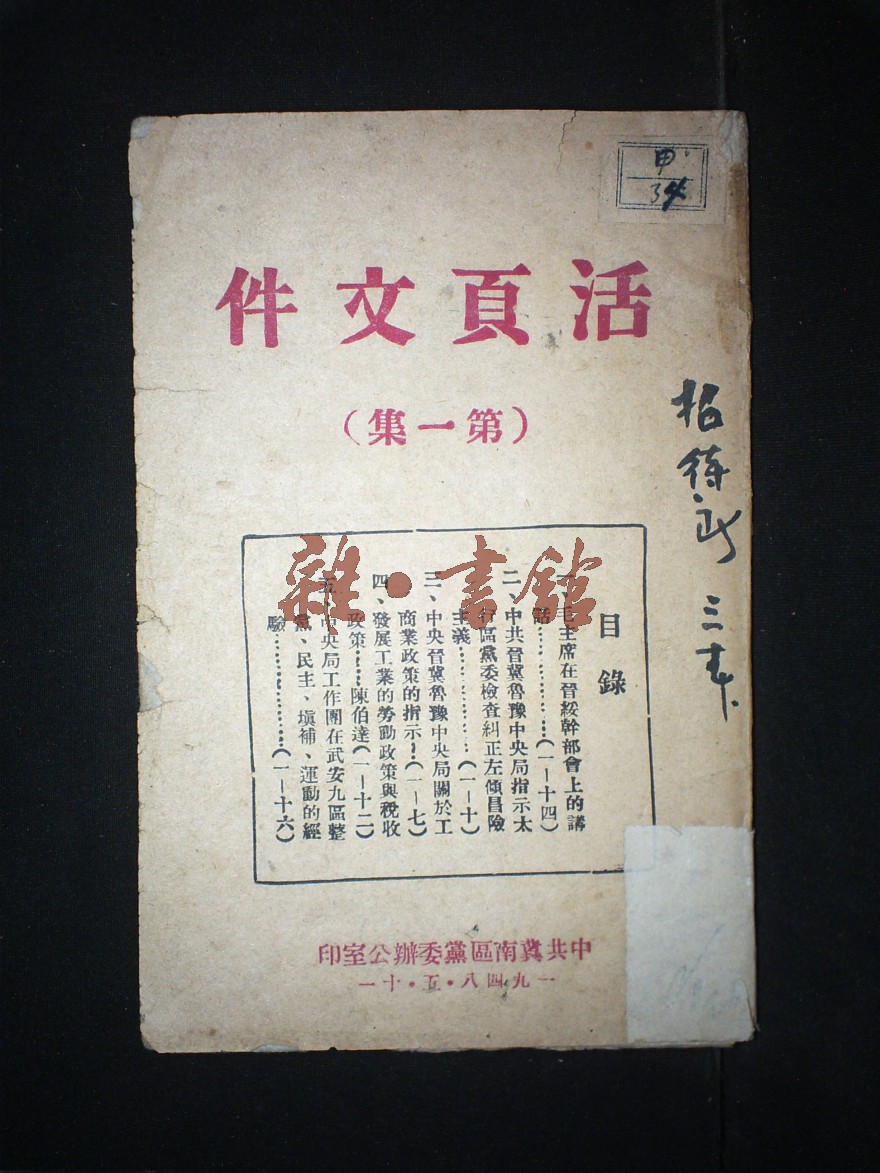 甲
34
活頁文件
（第一集）
招待所
雜·書館
目錄
一、毛主席在晉綏幹部會上的講
話………………（一—十四）
二、中共晉冀魯豫中央局指示太
行區黨委檢查糾正左傾冒險
主義………………（一—十）
三、中央晉冀魯豫中央局關於工
商業政策的指示…（一—七）
四、發展工業的勞動政策與稅收
政策………陳伯達（一—十二）
五、中央局工作團在武安九區整
黨、民主、塡補、運動的經
驗………………（一—十六）
中共冀南區黨委辦公室印
一九四八·五·十一